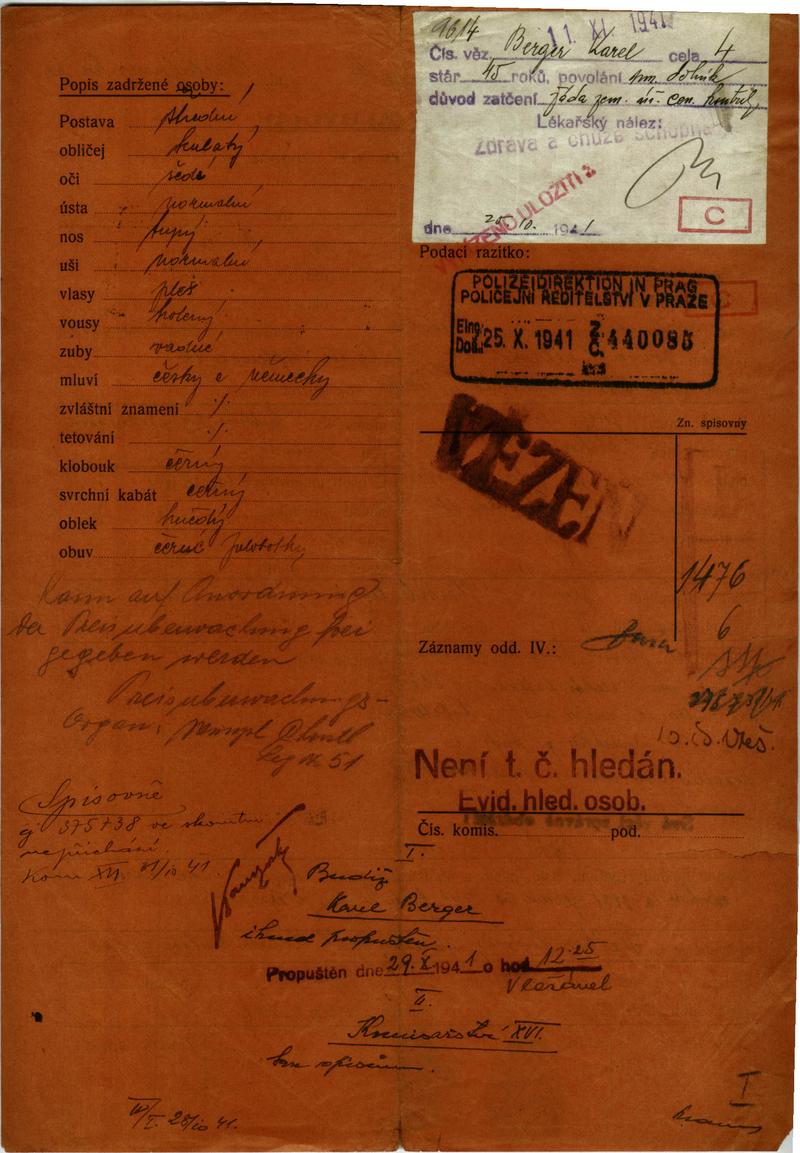 Popis zadržené osoby:
Postava střední
obličej kulatý
oči šedé
ústa normalní
nos tupý
uši normalní
vlasy pleš
vousy holený
zuby vadné
mluví česky a německy
zvláštní znamení ./.
tetování ./.
klobouk černý
svrchní kabát černý
oblek hnědý
obuv černé polobotky
Kann auf Anordnung
der Preisüberwachung frei
gegeben werden
Preisüberwachungs-
Organ:
Leg N. 51
Spisovně
375738 ve skoutnu
Kom XVI. 41
9614 11 XI 1941
Čís. věz. Berger Karel cela 4
stár 45 roků, povolání
důvod zatčení
Lékařský nález:
Zdráva a chůze schopna
C
dne 25/10. 1941
ULOŽITI
Podací razítko:
POLIZEIDIREKTION IN PRAG
POLICEJNÍ ŘEDITELSTVÍ V PRAZE
Eing.
Došl. 25. X. 1941 Z. Č. 440085
VĚZEŇ
Zn. spisovny
1476
6
Záznamy odd. IV.:
Není t. č. hledán.
Evid. hled. osob.
Čís. komis. pod.
I.
Budiž
Karel Berger
ihned propuštěn.
Propuštěn dne 29. X 1941 o hod 12.25
II.
Komisařství XVI.
ku spisům.
28/10 41.
I